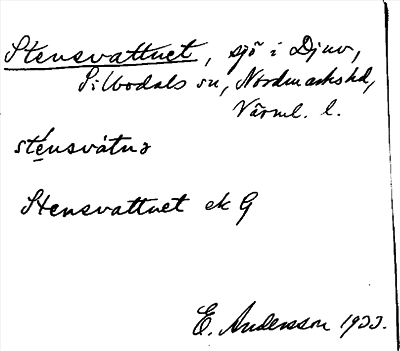 Stensvattnet, sjö i Djuv,
Silbodals sn, Nordmarks hd,
Värml. l.
sténsvátnə
Stensvattnet ek G
E. Andersson 1933.